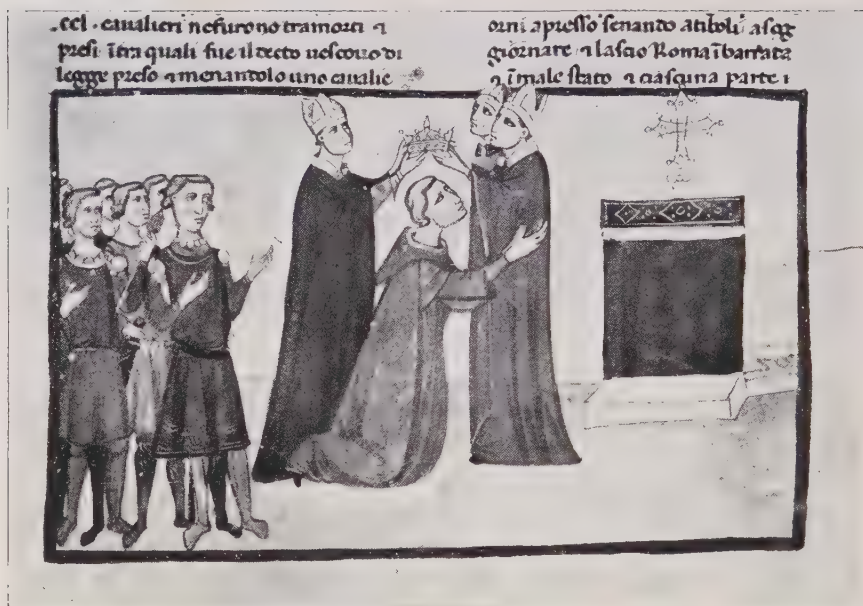 .ccl. cavalieri nefurono tramorti ⁊
presi ĩtra quali fue il decto vescovo di
legge preso ⁊ menandolo uno cavalie
orni apresso senando atiboli asog
giornare ⁊ lascio Roma ĩbarrata
⁊ ĩmale stato ⁊ ciascuna parte